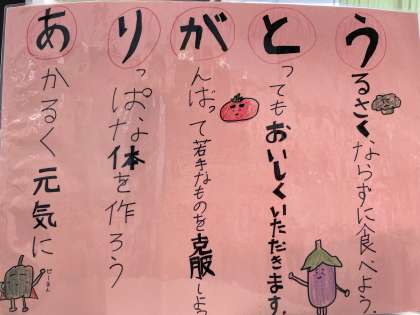 ありがとう
あかるく元気に
りっぱな体を作ろう
がんばって苦手なものを克服しよう
とってもおいしくいただきます。
うるさくならずに食べよう。
ピーまん